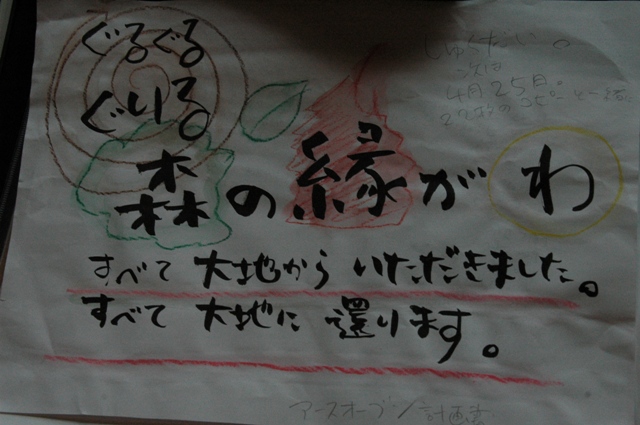 ぐるぐる
ぐりる。
しゅくだい。
次は
4月25日。
森の縁がわ
すべて 大地から いただきました。
すべて 大地に 還ります。
アースオーブン計画書